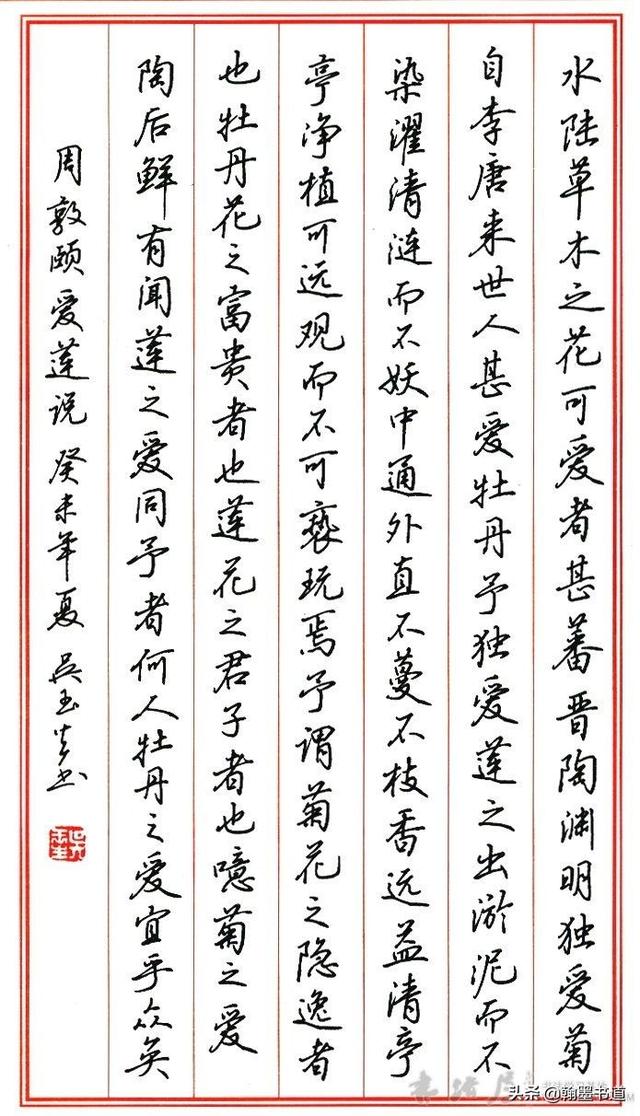 水陆草木之花可爱者甚蕃晋陶渊明独爱菊
自李唐来世人甚爱牡丹予独爱莲之出淤泥而不
染濯清涟而不妖中通外直不蔓不枝香远益清亭
亭净植可远观而不可亵玩焉予谓菊花之隐逸者
也牡丹花之富贵者也莲花之君子者也噫菊之爱
陶后鲜有闻莲之爱同予者何人牡丹之爱宜乎众矣
周敦颐爱莲说 癸未年夏 吴玉生书
头条@翰墨书道